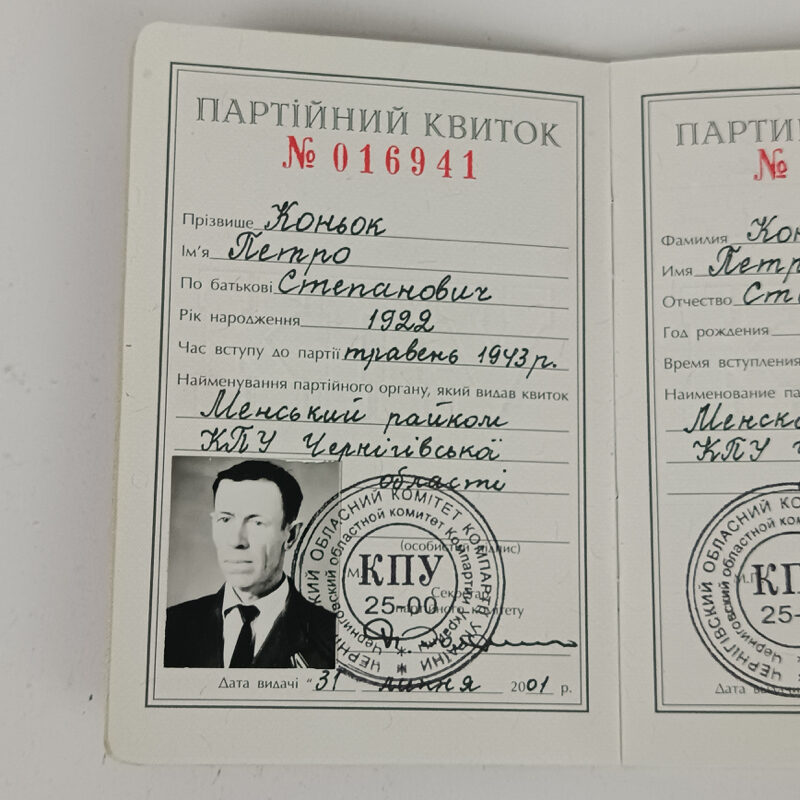 ПАРТІЙНИЙ КВИТОК
№ 016941
Прізвище Коньок
Ім'я Петро
По батькові Степанович
Рік народження 1922
Час вступу до партії травень 1943 р.
Найменування партійного органу, який видав квиток
Менський райком
КПУ Чернігівської
області
(особистий підпис)
М.
Секретар
партійного комітету
ЧЕРНІГІВСЬКИЙ ОБЛАСНИЙ КОМІТЕТ КОМПАРТІЇ УКРАЇНИ
Черниговский областной комитет Компартии Украины
КПУ
25-00
Дата видачі "31 липня 2001 р.
ПАРТИ
№
Фамилия Кон
Имя Петр
Отчество Ст
Год рождения
Время вступления
Наименование па
Менск
КПУ
М.П.
ЧЕРНІГІВСЬКИЙ ОБЛАСНИЙ КО
Черниговский областной комитет
КП
25-
Дата